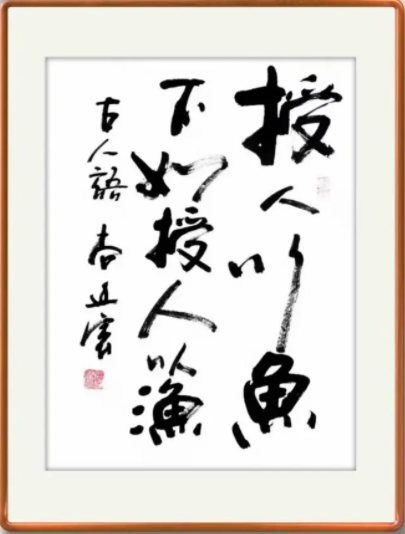 授人以魚
不如授人以漁
古人語